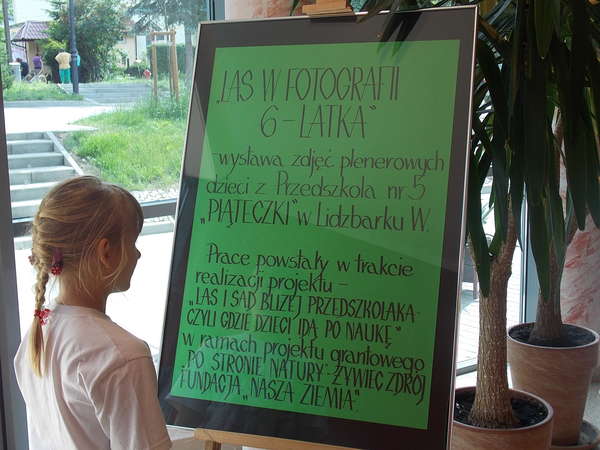 „LAS W FOTOGRAFII
6-LATKA"
wystawa zdjęć plenerowych
dzieci z Przedszkola nr 5
„PIĄTECZKI" w Lidzbarku W.
Prace powstały w trakcie
realizacji projektu –
„LAS I SAD BLIŻEJ PRZEDSZKOLAKA-
CZYLI GDZIE DZIECI IDĄ PO NAUKĘ"
w ramach projektu grantowego
„PO STRONIE NATURY" ŻYWIEC ZDRÓJ
FUNDACJA „NASZA ZIEMIA".